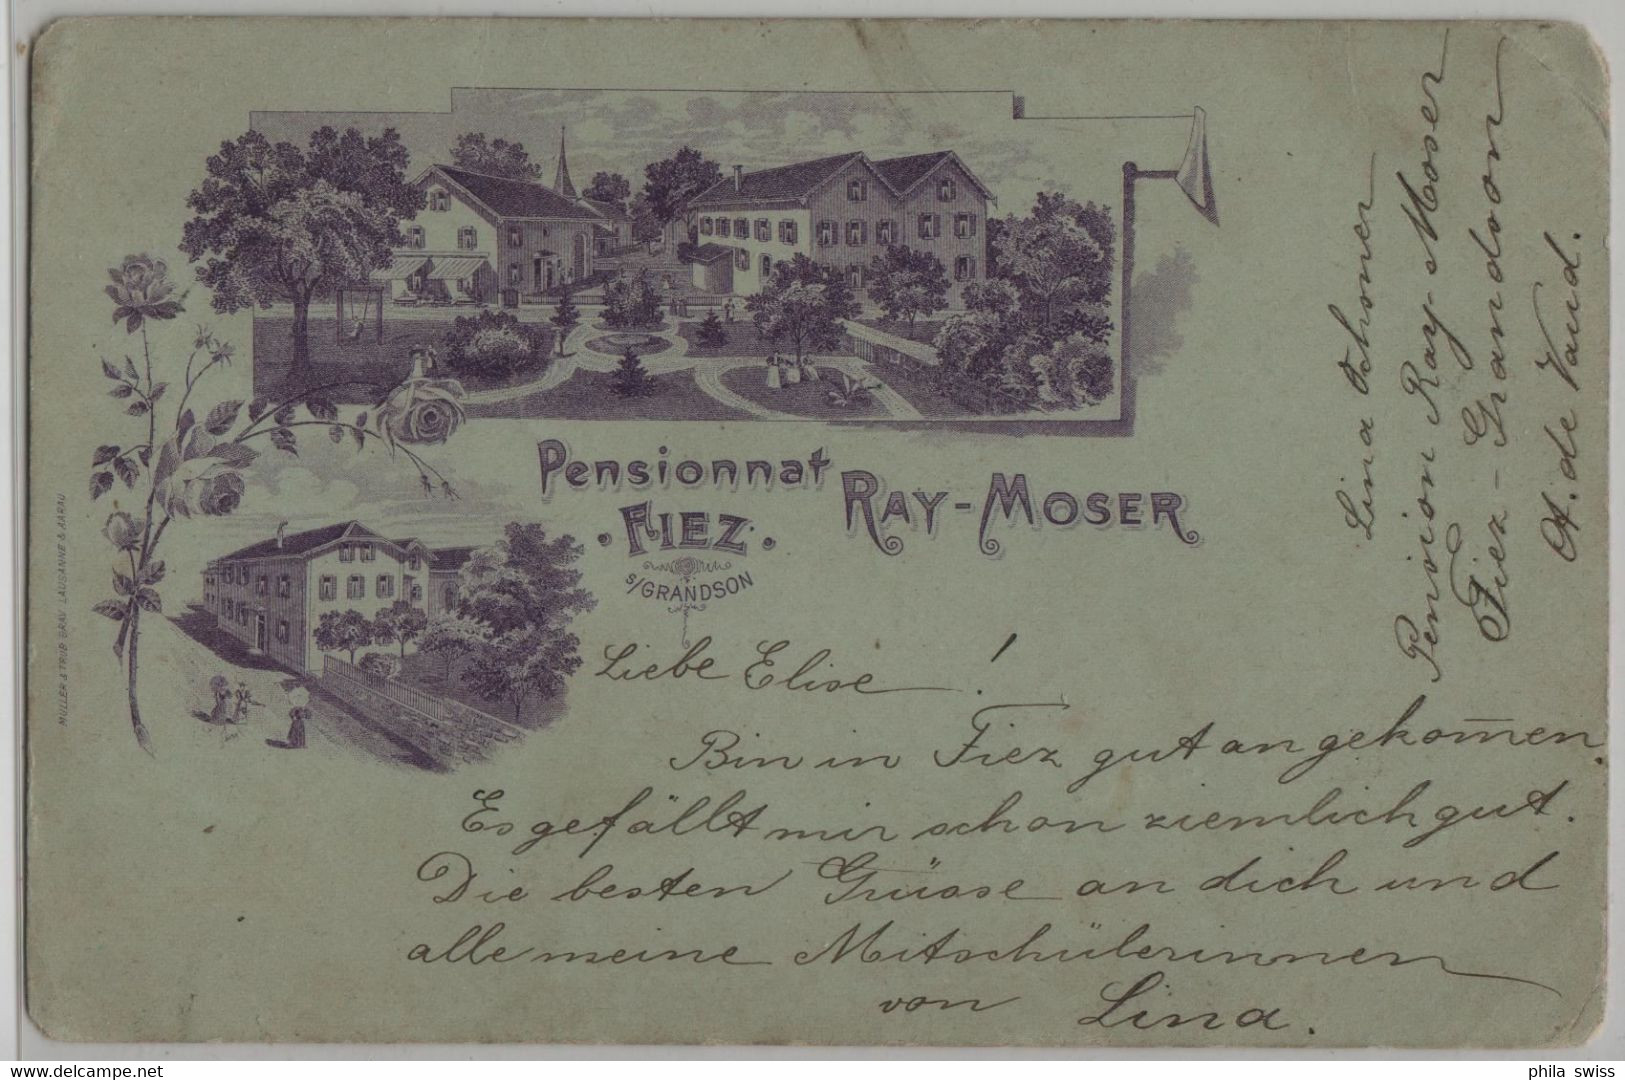 Pensionnat
RAY-MOSER
FIEZ
s/GRANDSON
MÜLLER & TRÜB GRAV. LAUSANNE & AARAU
Liebe Elise!
Bin in Fiez gut angekom̄en.
Es gefällt mir schon ziemlich gut.
Die besten Grüsse an dich und
alle meine Mitschülerinnen
von Lina.
Lina
Pension Ray-Moser
Fiez-Grandson
Ct. de Vaud.
www.delcampe.net
phila_swiss